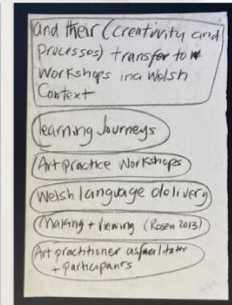 and their (creativity and
processes) transfer to
Workshops in a Welsh
Context
learning Journeys
Art practice Workshops
Welsh language delivery
Making + Viewing (Rosen 2013)
Art practitioner as facilitator
+ participants